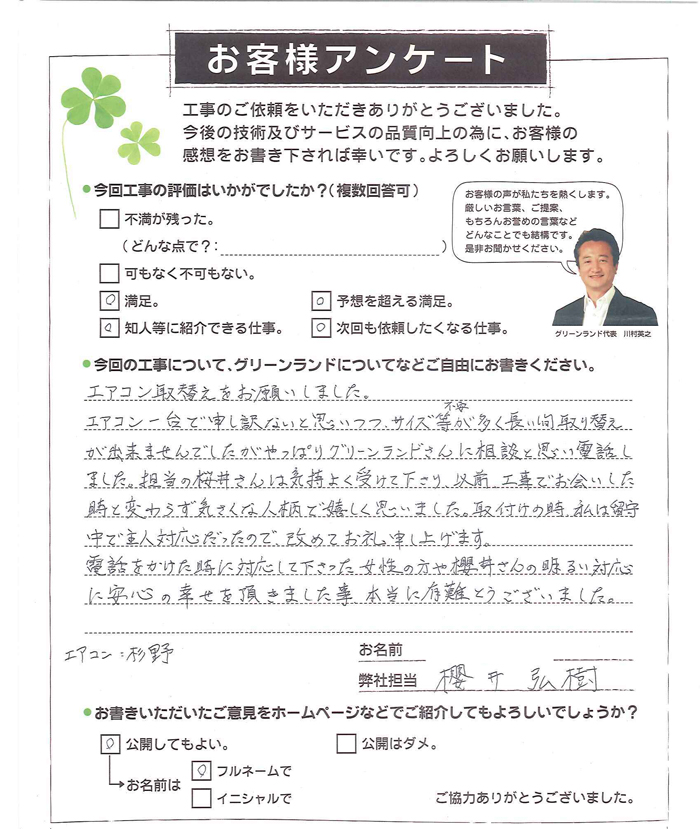 お客様アンケート
工事のご依頼をいただきありがとうございました。
今後の技術及びサービスの品質向上の為に、お客様の
感想をお書き下されば幸いです。よろしくお願いします。
●今回工事の評価はいかがでしたか？（複数回答可）
不満が残った。
（どんな点で？：　）
可もなく不可もない。
満足。
予想を超える満足。
知人等に紹介できる仕事。
次回も依頼したくなる仕事。
お客様の声が私たちを熱くします。
厳しいお言葉、ご提案、
もちろんお誉めの言葉など
どんなことでも結構です。
是非お聞かせください。
グリーンランド代表　川村英之
●今回の工事について、グリーンランドについてなどご自由にお書きください。
エアコン取替えをお願いしました。
エアコン一台で申し訳ないと思いつつ、サイズ等不安が多く長い間取り替え
が出来ませんでしたがやっぱりグリーンランドさんに相談と思い電話し
ました。担当の桜井さんは気持よく受けて下さり、以前、工事でお会いした
時と変わらず気さくな人柄で嬉しく思いました。取付けの時、私は留守
中で主人対応だったので、改めてお礼申し上げます。
電話をかけた時に対応して下さった女性の方や櫻井さんの明るい対応
に安心の幸せを頂きました事、本当に有難とうございました。
エアコン：杉野
お名前
弊社担当　櫻井　弘樹
●お書きいただいたご意見をホームページなどでご紹介してもよろしいでしょうか？
公開してもよい。
公開はダメ。
お名前は
フルネームで
イニシャルで
ご協力ありがとうございました。